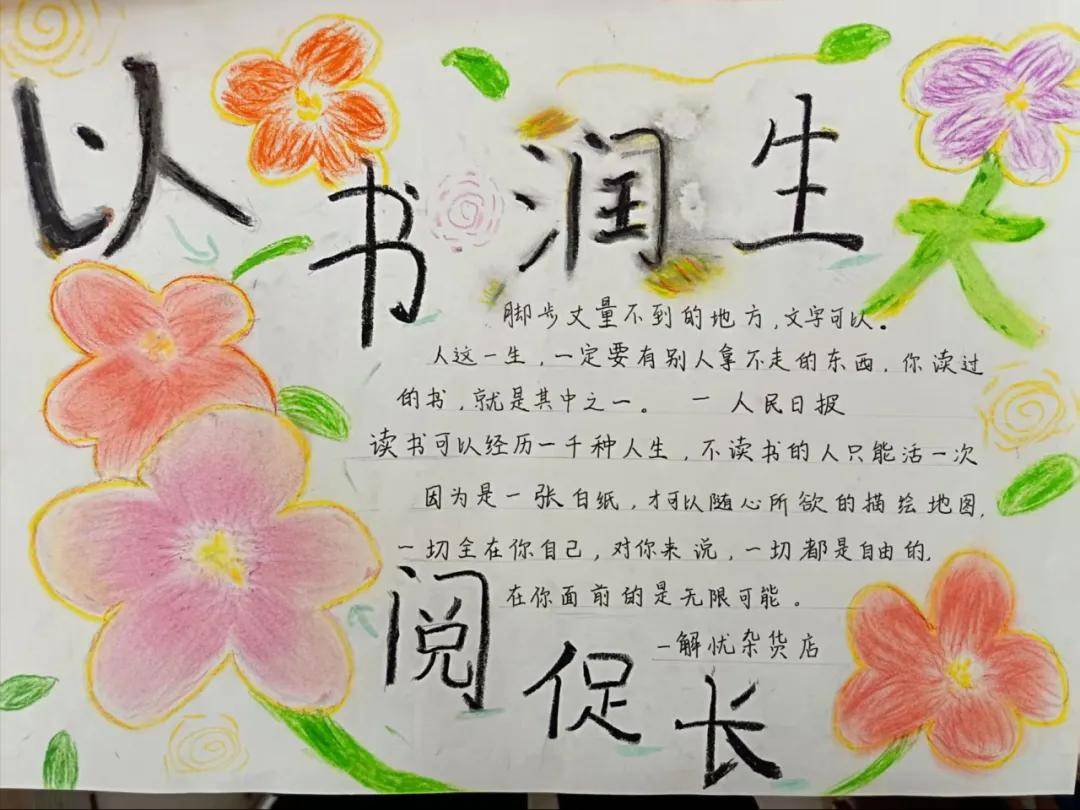 以书润生
脚步丈量不到的地方,文字可以。
人这一生,一定要有别人拿不走的东西,你读过
的书,就是其中之一。 一 人民日报
读书可以经历一千种人生,不读书的人只能活一次
因为是一张白纸,才可以随心所欲的描绘地图,
一切全在你自己,对你来说,一切都是自由的,
在你面前的是无限可能。
一解忧杂货店
阅促长